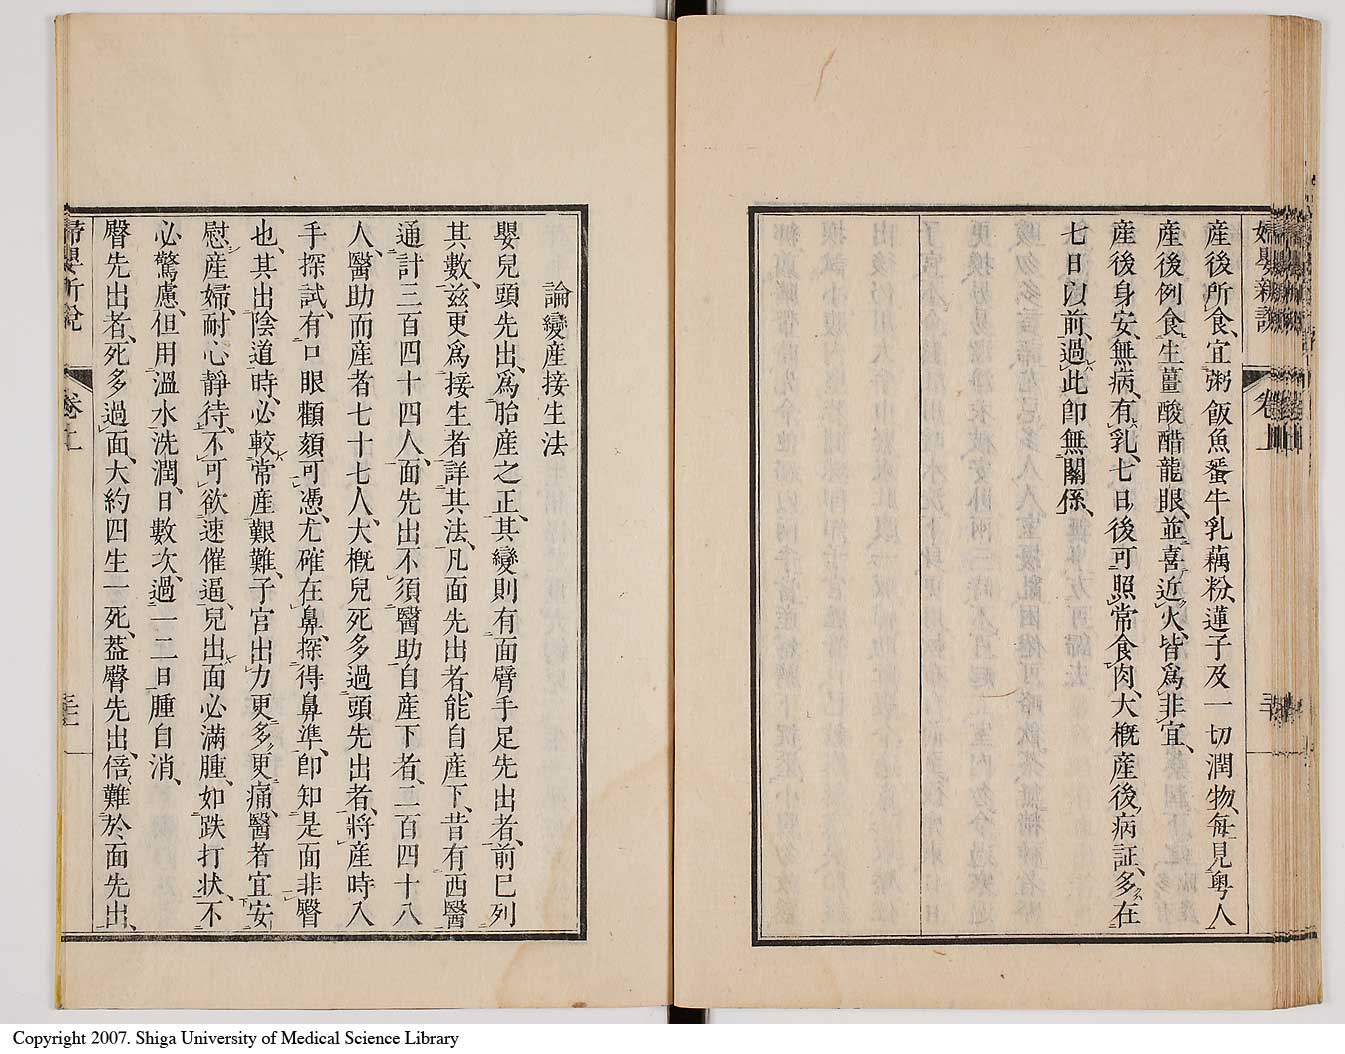 婦嬰新說
産後所食、宜粥飯魚蜑牛乳藕粉、蓮子及一切潤物、每見粤人
産後例食、生薑酸醋龍眼、並喜近火、皆爲非宜、
産後身安、無病、有乳、七日後可照常食肉、大槪産後、病証、多在
七日以前、過此卽無關係、
論變産接生法
嬰兒頭先出、爲胎産之正、其變則有面臂手足先出者、前巳列
其數、兹更爲接生者詳其法、凡面先出者、能自産下、昔有西醫
通計三百四十四人、面先出不須醫助自産下者、二百四十八
人、醫助而産者七十七人、大槪兒死多過頭先出者、將産時入
手探試、有口眼顴頦可憑、尤確在鼻、探得鼻準、卽知是面非臀
也、其出陰道時、必較常産艱難、子宮出力更多、更痛、醫者宜安
慰産婦、耐心靜待、不可欲速催逼、兒出面必滿腫、如跌打狀、不
必驚慮、但用溫水洗潤、日數次、過一二日腫自消、
臀先出者、死多過面、大約四生一死、葢臀先出、倍難於面先出、
婦嬰新說